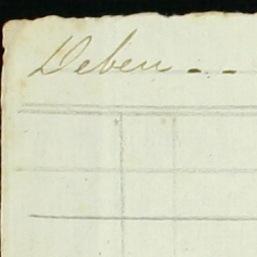 Deben - -